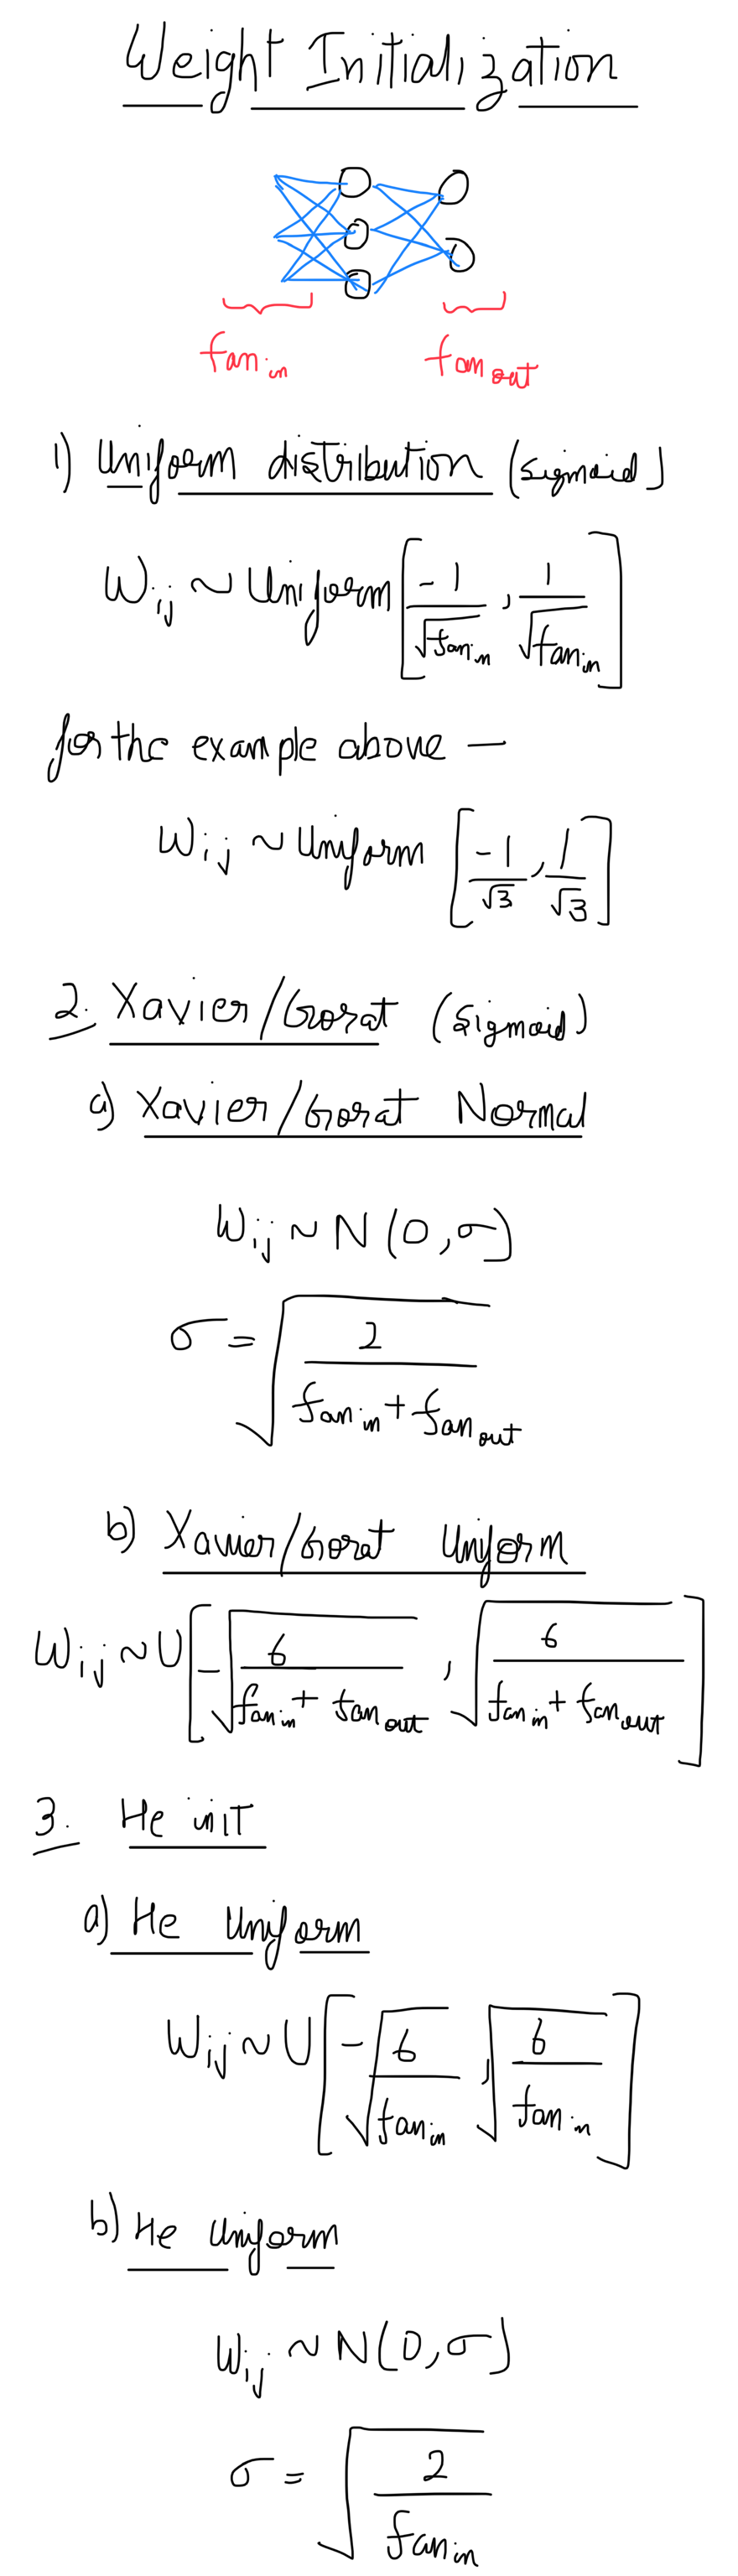 Weight Initialization
fan in fan out
1) Uniform distribution (Sigmoid)
W_ij ~ Uniform [-1/√fan_in , 1/√fan_in]
for the example above —
W_ij ~ Uniform [-1/√3 , 1/√3]
2. Xavier/Gorat (Sigmoid)
a) Xavier/Gorat Normal
W_ij ~ N(0,σ)
σ = √(2/(fan_in + fan_out))
b) Xavier/Gorat Uniform
W_ij ~ U[-√(6/(fan_in + fan_out)) , √(6/(fan_in + fan_out))]
3. He init
a) He Uniform
W_ij ~ U[-√(6/fan_in) , √(6/fan_in)]
b) He Uniform
W_ij ~ N(0,σ)
σ = √(2/fan_in)